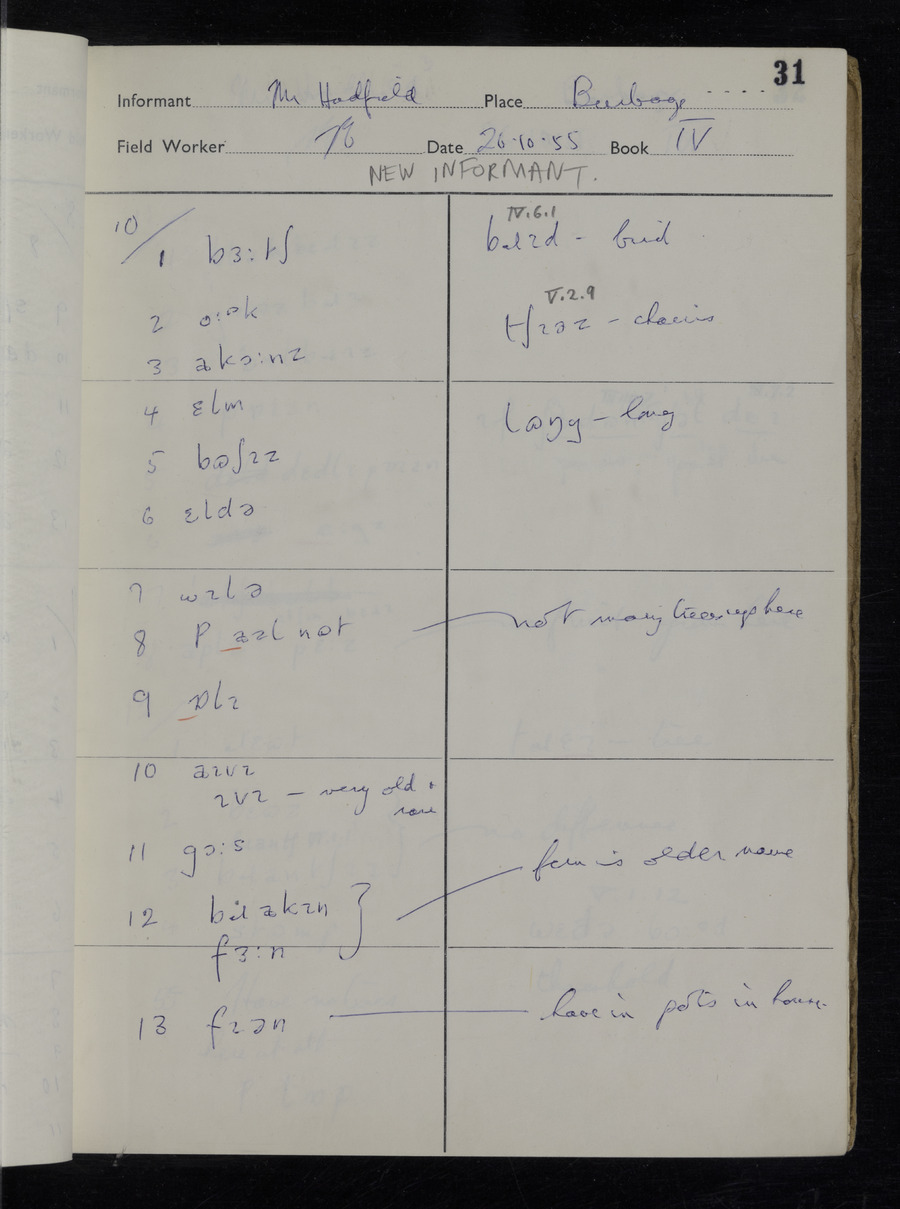 31
Informant Mr Hadfield Place Burbage
Field Worker Date 26.10.55 Book IV
NEW INFORMANT.
10/
1 bɜ:tʃ
IV.6.1
bɹɪd - bird
2 o:ək
V.2.9
tʃɪəz - chairs
3 akɔ:nz
4 ɛlm
laŋg - long
5 bɷʃɪz
6 ɛldə
7 wɪlə
8 not many trees up here
9 ɒlɪ
10 aɪvɪ
ɪvɪ - very old +
rare
11 gɔ:s
fern is older name
12 bɹakɪn
fɜ:n
13 fɪən have in pots in house